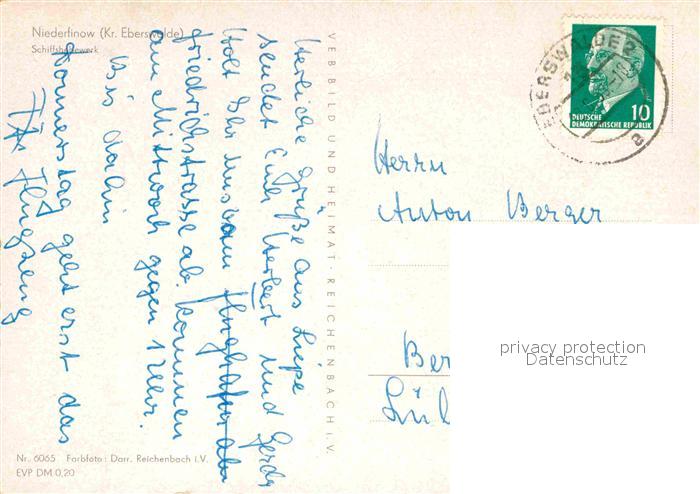 Niederfinow (Kr. Eberswalde)
Schiffshebewerk
Herzliche Grüße aus Liepe
sendet Euch Herbert und Gerda
Holt Ihr uns vom Flughafen ab
Friedrichstrasse ab. Kommen
am Mittwoch gegen Uhr.
Bis dahin
Donnerstag geht erst das
Flugzeug
Nr. 6065 Farbfoto: Darr, Reichenbach i.V.
EVP DM 0,20
VEB BILD UND HEIMAT · REICHENBACH I. V.
EBERSWALDE 2
a
10
DEUTSCHE
DEMOKRATISCHE REPUBLIK
Herrn
Anton Berger
Ber
Lüb
privacy protection
Datenschutz